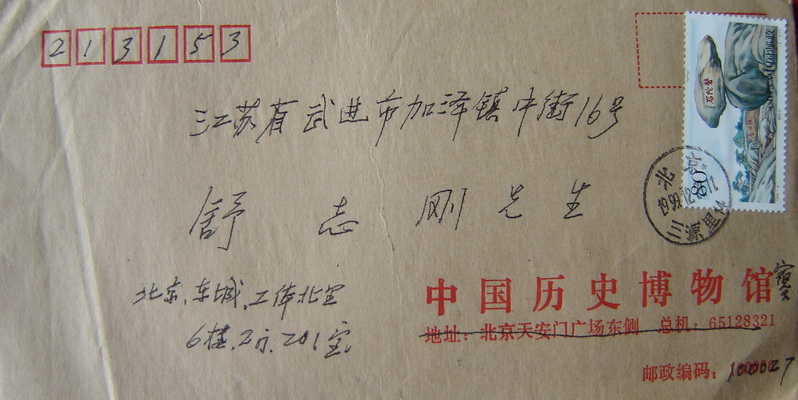 213153
江苏省武进市加泽镇中街16号
舒志刚先生
北京.东城.工体北里
6楼.2门.201室
中国历史博物馆
地址：北京天安门广场东侧 总机：65128321
邮政编码：100027
北京
1999.12
三源里14
80